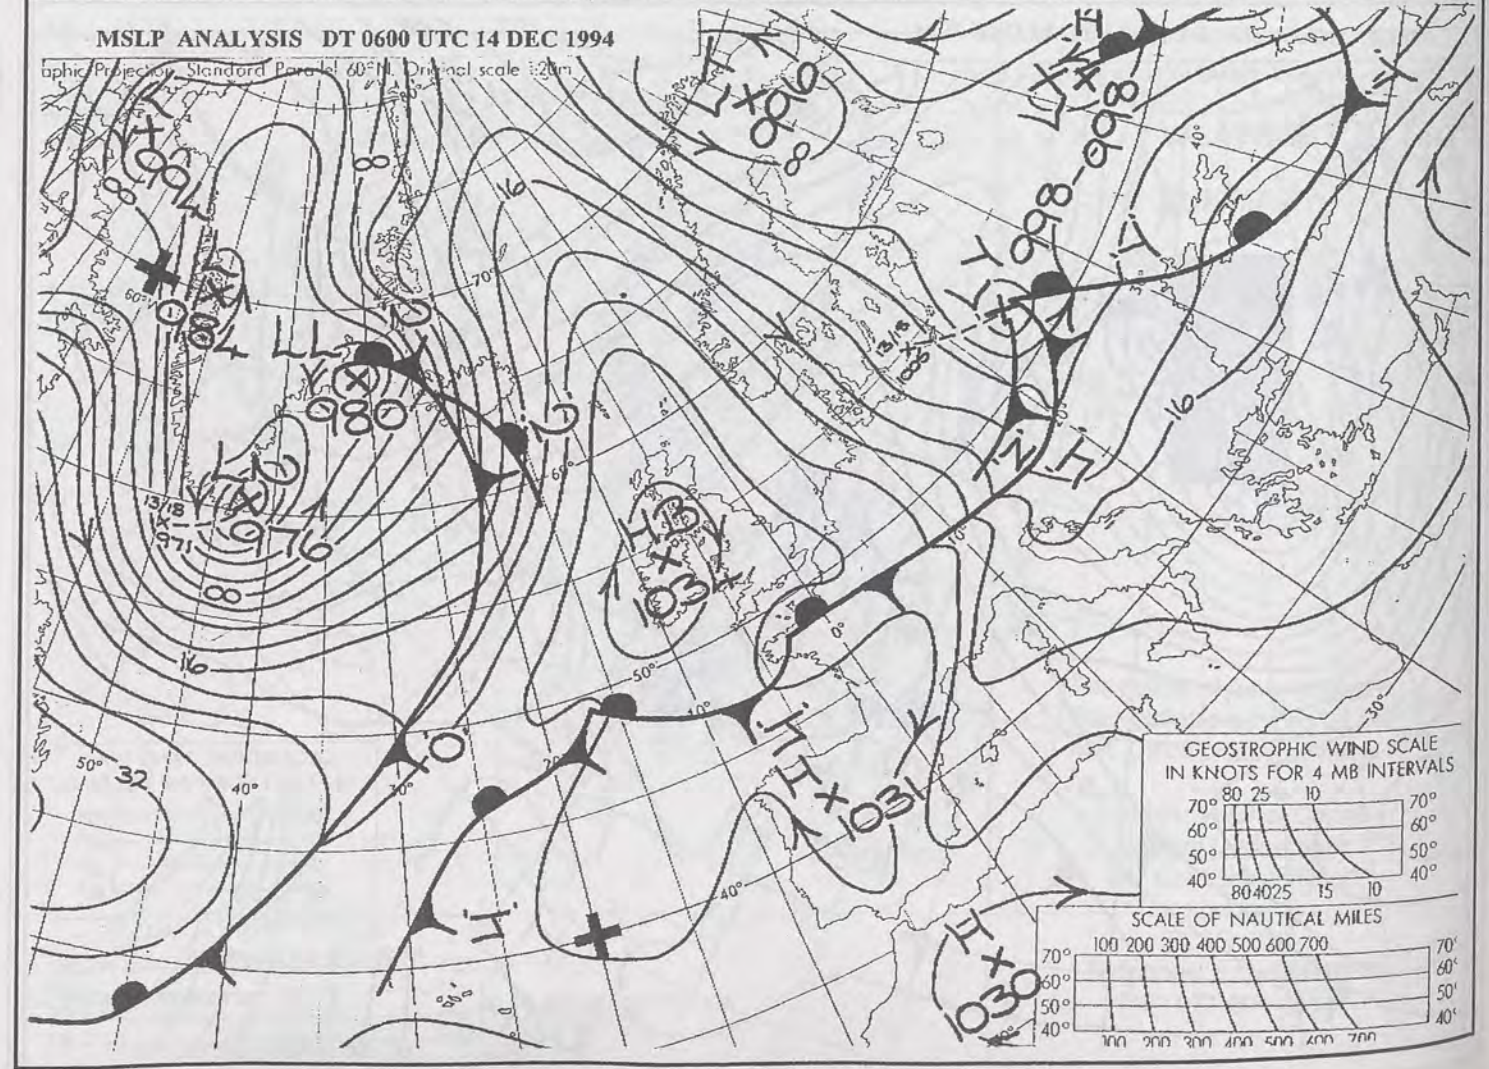 MSLP ANALYSIS DT 0600 UTC 14 DEC 1994
aphic Projection Standard Parallel 60°N. Original scale 1:20m
L
X
994
8
8
16
L
X
996
8
H
L
X
998
998
40°
70°
60°
X
984
L
X
980
L
X
976
13/18
X
971
8
16
65°
13/18
X
1006
L
X
16
H
X
1034
10°
0°
50°
10°
30°
50°
32
40°
30°
20°
H
X
1031
40°
H
X
1030
GEOSTROPHIC WIND SCALE
IN KNOTS FOR 4 MB INTERVALS
80 25 10
70° 70°
60° 60°
50° 50°
40° 40°
80 40 25 15 10
SCALE OF NAUTICAL MILES
100 200 300 400 500 600 700
70° 70°
60° 60°
50° 50°
40° 40°
100 200 300 400 500 600 700